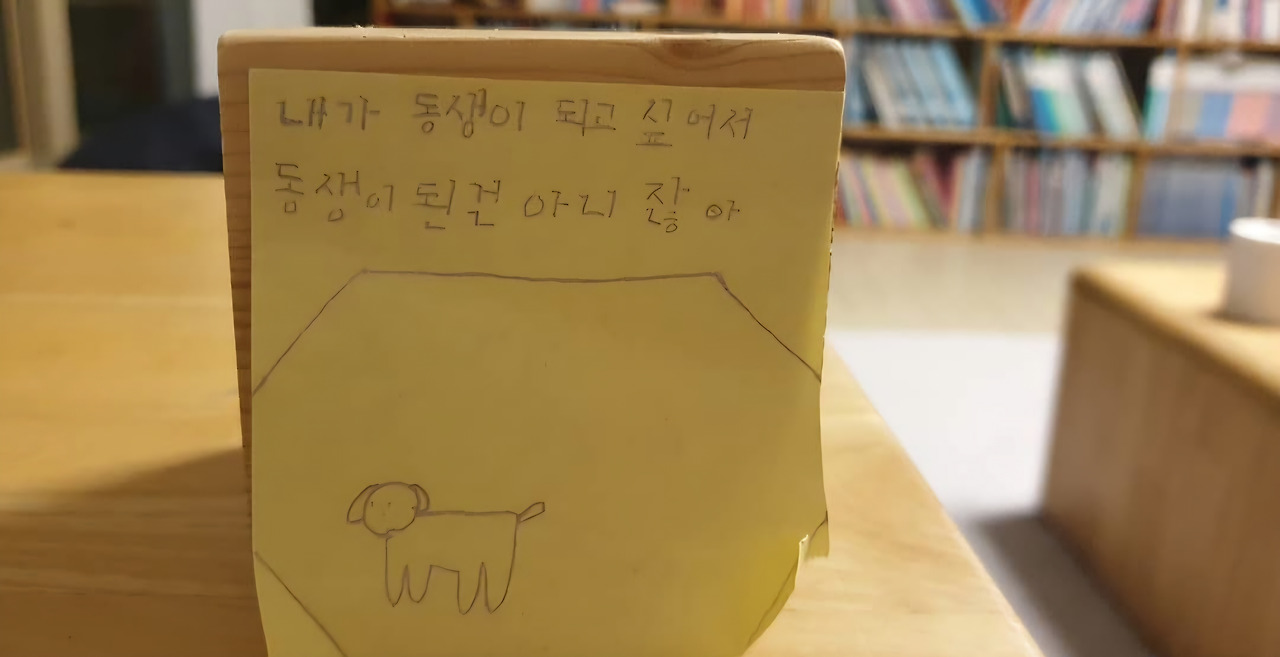 내가 동생이 되고 싶어서
동생이 된건 아니 잖아